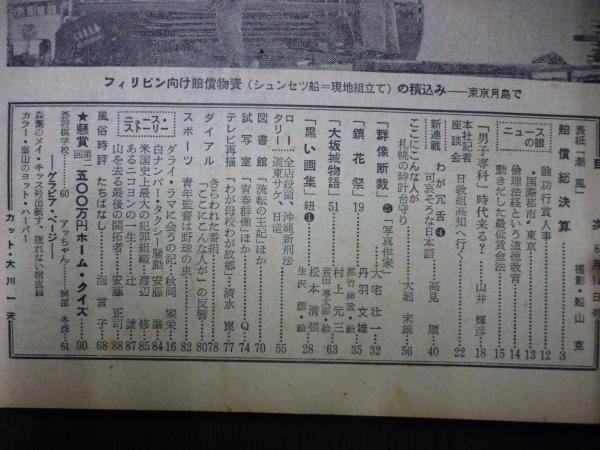 フィリピン向け賠償物資（シュンセツ船＝現地組立て）の積込み――東京月島で
目 次 6月14日号
表紙「潮風」 撮影・船山 克
賠償総決算 3
ニュースの眼
論功行賞人事 12
・国際都市・東京 13
倫理法経という道徳教育 14
動きだした最低賃金法 15
「男子専科」時代来る? 山井 輝彦 18
本社記者座談会 日教組高知へ行く 22
新連載 わが冗舌④ 可哀そうな日本語 高見 順 40
ここにこんな人が 札幌の時計台守り 大堀 末雄 56
「群像断裁」㉕「写真作家」 大宅 壮一 32
「鏡花祭」19 丹羽 文雄 35
都竹 伸政・絵
「大坂城物語」51 村上 元三 63
岩田 専太郎・絵
「黒い画集」紐❶ 松本 清張 28
生沢 朗・絵
ロータリー 全店殺菌、沖縄新刑法
道東サケ、日竜 55
図書館「流転の王妃」ほか 70
試写室「青春群像」ほか Q 74
テレビ再描「わが母校わが故郷」 清水 崑 77
ダイアル きらわれた番組 78
「ここにこんな人が」の反響 80
スポーツ 青年監督は野球の虫 82
ニュース・ストーリー
ダライ・ラマに会うの記 秋岡 家栄 16
白ナンバー・タクシー騒動 安藤 84
米国史上最大の犯罪組織 渡辺 修 85
あるニコヨンの一生 辻 謙 87
山を去る最後の開拓者 安藤 正司 88
風俗時評 たちばなし 泡 言子 68
★懸賞 第二回 五〇〇万円ホーム・クイズ 90
60 アッちゃん 岡部 冬彦 61
――グラビア・ページ――
森繁のメイ・キッス号出航す、眠れない宿直員
カラー・葉山のヨット・ハーバー
カット・大川 一夫